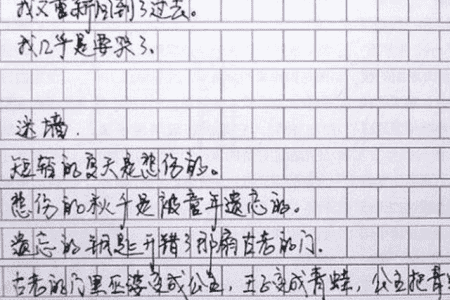 我又重新回到了过去。
我几乎是要哭了.
迷墙.
短暂的夏天是悲伤的。
悲伤的秋千是被童年遗忘的。
遗忘的钥匙开错了那扇古老的门.
古老的门里巫婆变成公主，王子变成青蛙，公主把青